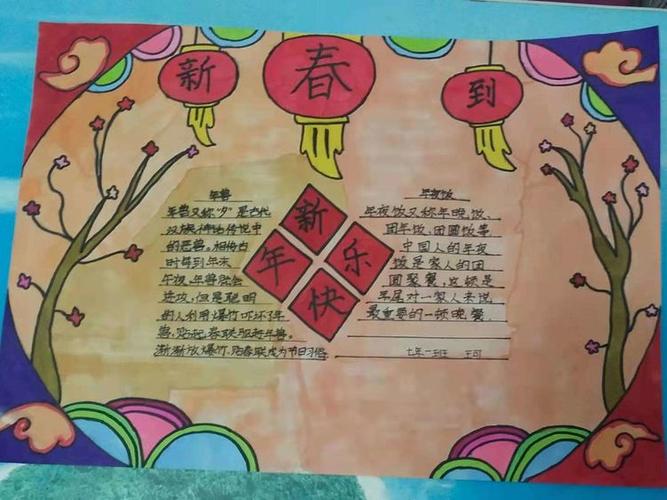 新
春
到
新
年
乐
快
年兽
年兽又称"夕"是古代
汉族神话传说中
的恶兽。相传古
时每到年末
午夜,年兽就会
进攻,但是聪明
的人利用爆竹吓坏了年
兽,
渐渐放爆竹,贴春联成为节日习俗
年夜饭
年夜饭又称年晚饭、
团年饭、团圆饭等
中国人的年夜
饭是家人的团
圆聚餐,这顿是
年尾对一家人来说
最重要的一顿晚餐
七年一班 王可